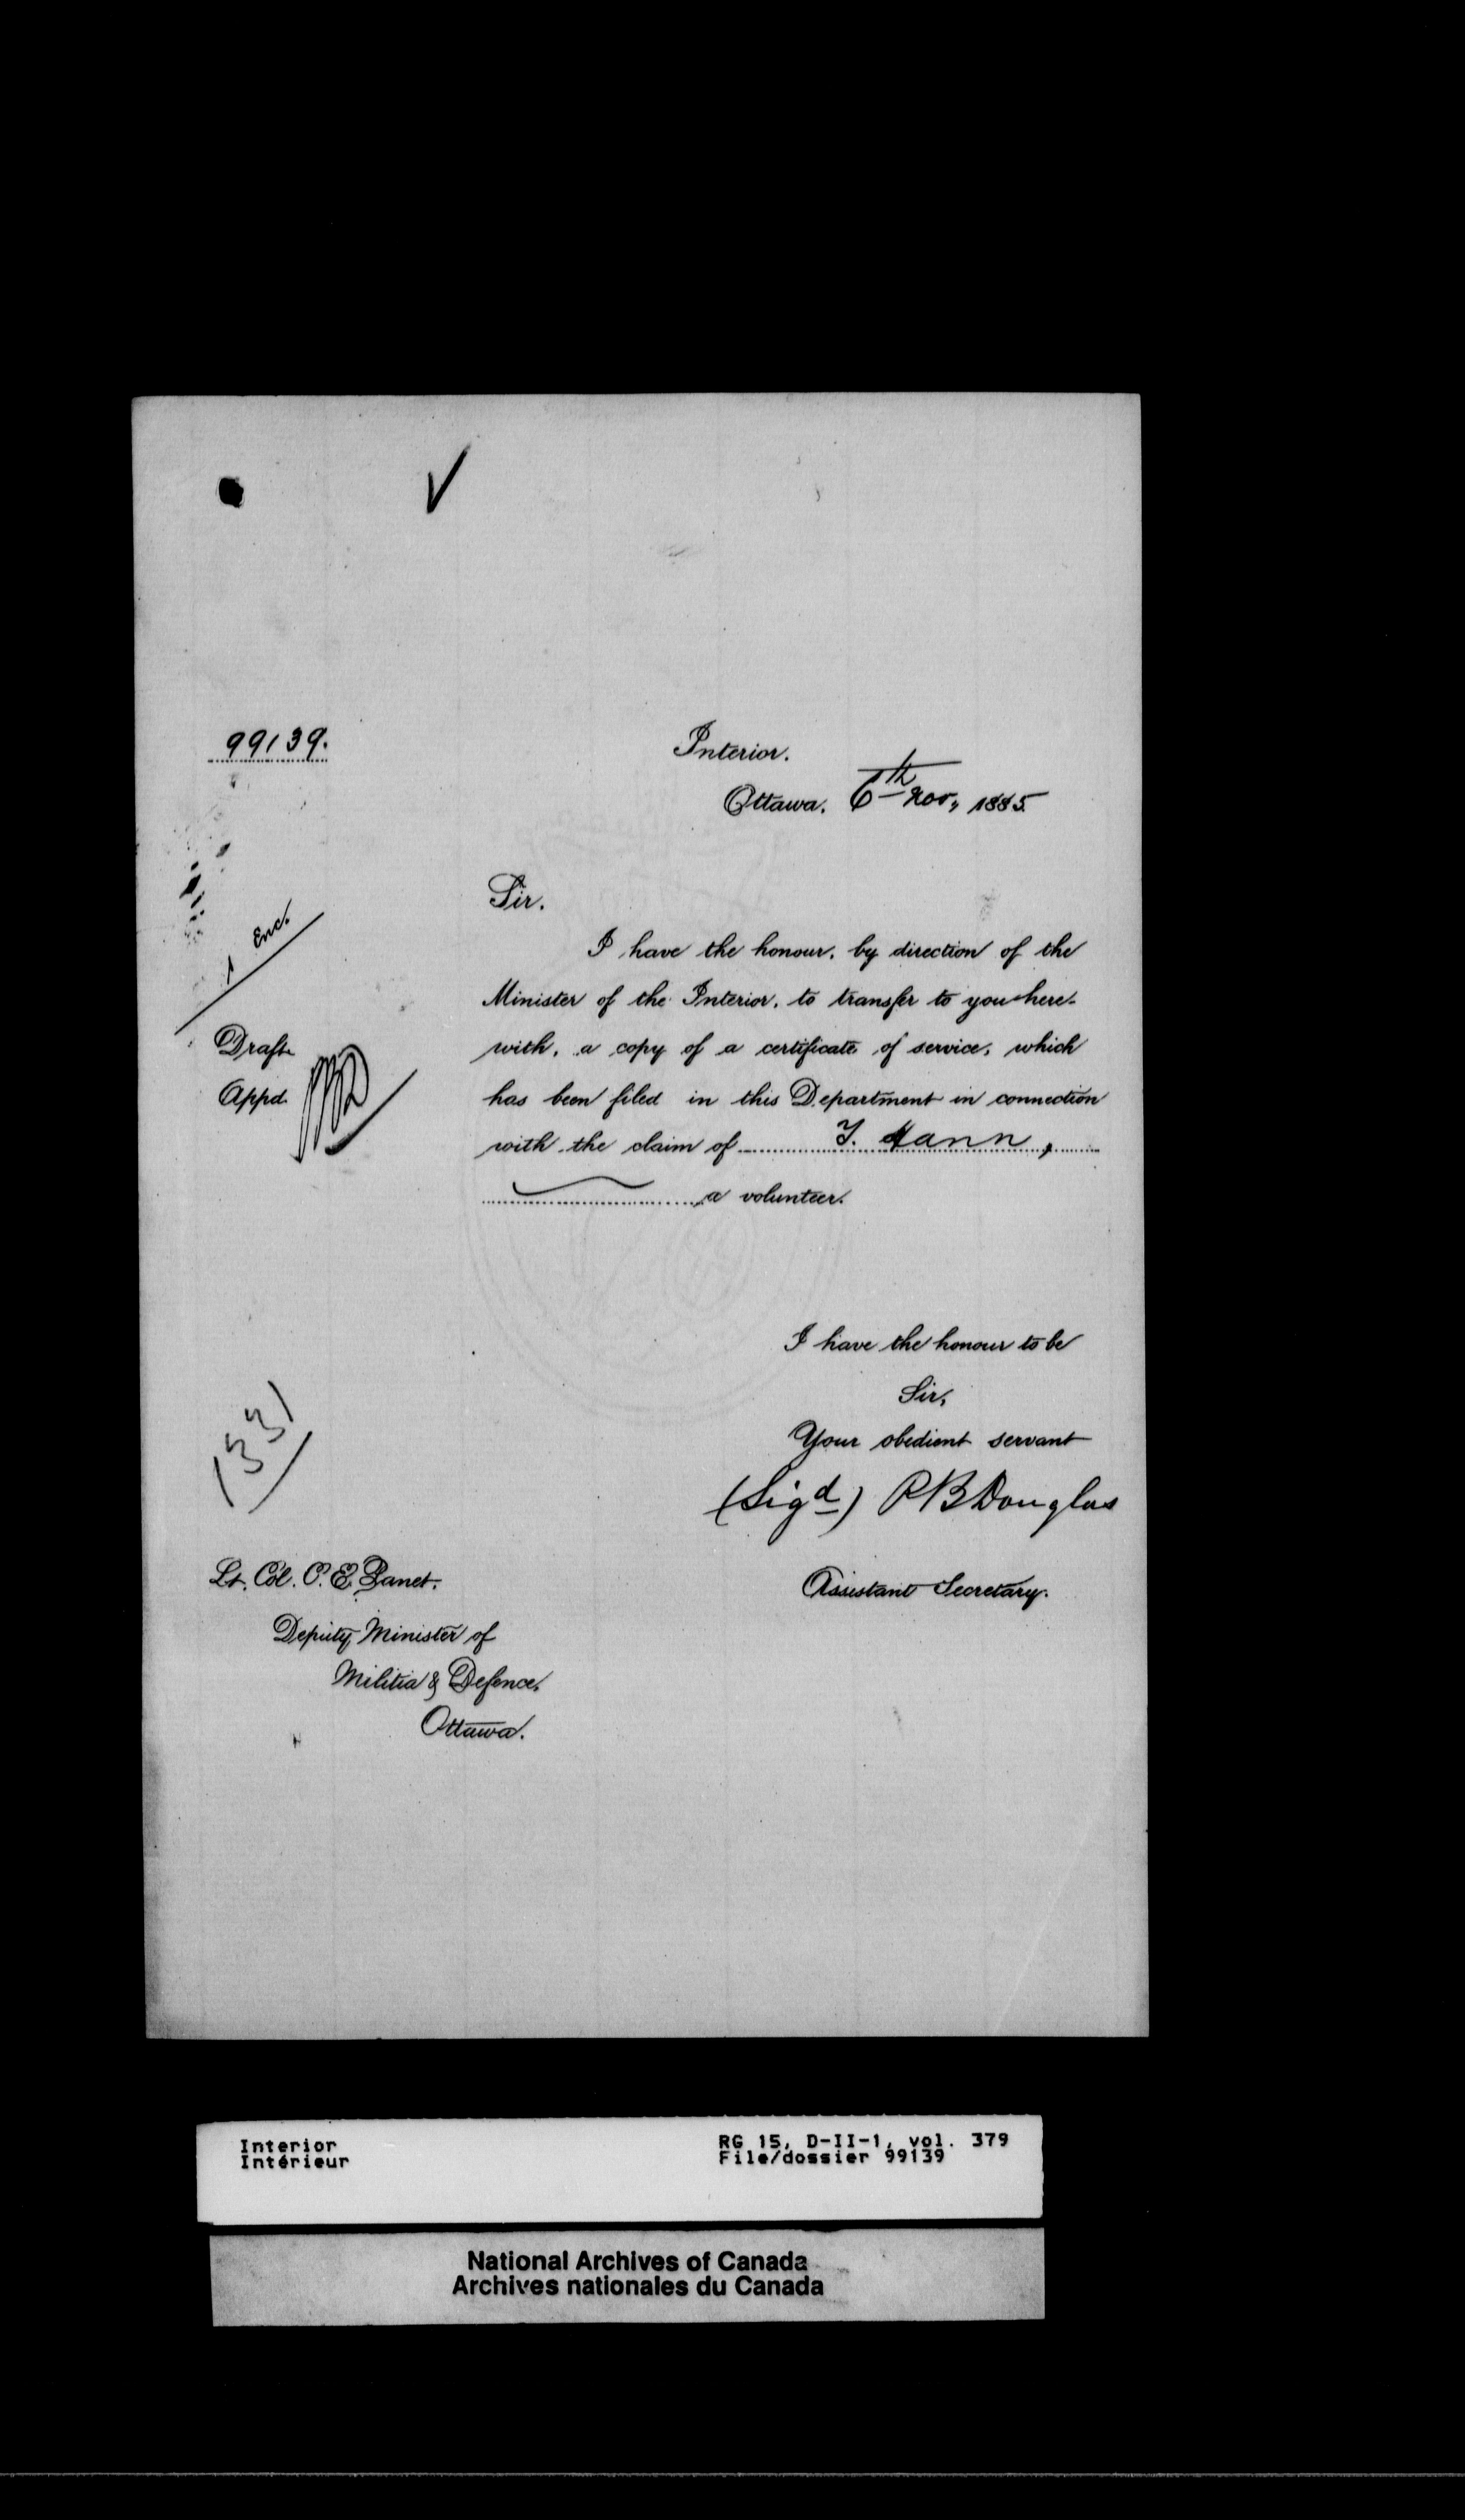 99139.
Interior.
Ottawa. 6th Nov., 1885.
1 Enc.
Sir.
I have the honour, by direction of the
Minister of the Interior, to transfer to you here-
with, a copy of a certificate of service, which
has been filed in this Department in connection
with the claim of
a volunteer.
Draft
Appd.
I have the honour to be
Sir,
Your obedient servant
(Sigd) P B Douglas
Assistant Secretary.
1331
Lt. Col. C. E. Panet.
Deputy Minister of
Militia & Defence,
Ottawa.
Interior
Intérieur
RG 15, D-II-1, vol. 379
File/dossier 99139
National Archives of Canada
Archives nationales du Canada